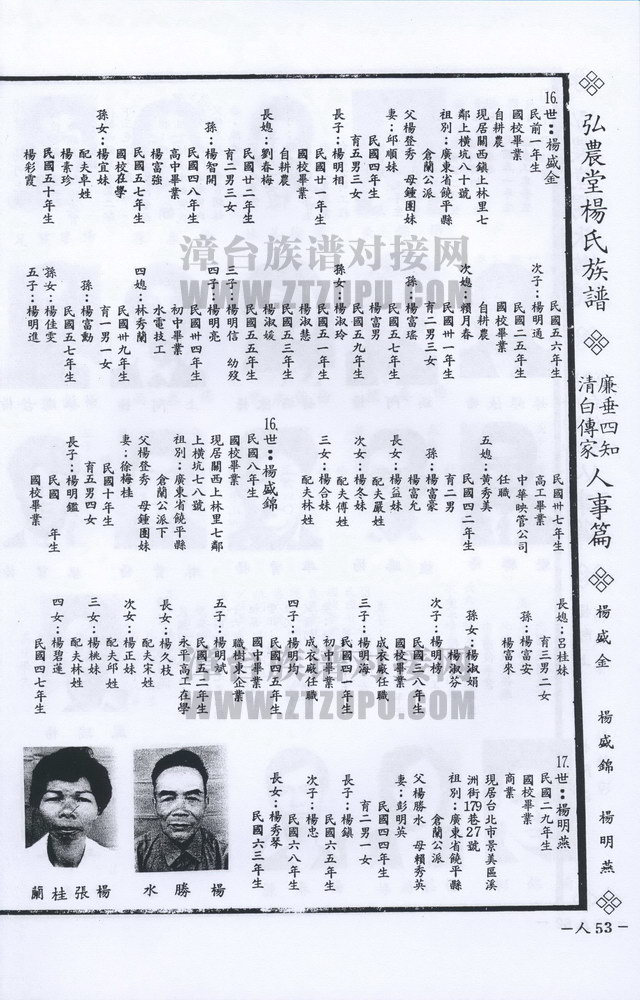 弘農堂楊氏族譜
廉垂四知
清白傳家
人事篇
楊盛金
楊盛錦
楊明燕
－人53－
16.世：楊盛金
民前一年生
國校畢業
自耕農
現居關西鎮上林里七
鄰上橫坑八十號
祖別：廣東省饒平縣
倉蘭公派
父楊登秀 母鍾團妹
妻：邱順妹
民國四年生
育五男三女
長子：楊明相
民國廿一年生
國校畢業
自耕農
長媳：劉春梅
民國廿二年生
育二男三女
孫：楊智開
民國四八年生
高中畢業
楊富強
民國五七年生
國校在學
孫女：楊宜妹
配夫卓姓
楊素珍
民國五十年生
楊彩霞
民國五六年生
次子：楊明通
民國二五年生
國校畢業
自耕農
次媳：賴月春
民國卅一年生
育二男三女
孫：楊富瑤
民國五七年生
楊富男
民國五九年生
孫女：楊淑玲
民國五一年生
楊淑慧
民國五三年生
楊淑媛
民國五五年生
三子：楊明信 幼歿
四子：楊明亮
民國卅四年生
初中畢業
水電技工
四媳：林秀蘭
民國卅九年生
育一男一女
孫：楊富勳
民國五七年生
孫女：楊佳雯
五子：楊明進
民國卅七年生
高工畢業
中華映管公司
任職
五媳：黃秀美
民國四二年生
育二男
孫：楊富豪
楊富允
長女：楊益妹
配夫嚴姓
次女：楊冬妹
配夫傅姓
三女：楊合妹
配夫林姓
16.世：楊盛錦
民國八年生
國校畢業
現居關西上林里七鄰
上橫坑七八號
祖別：廣東省饒平縣
倉蘭公派下
父楊登秀 母鍾團妹
妻：徐梅桂
民國十年生
育五男四女
長子：楊明鑑
民國 年生
國校畢業
長媳：呂桂妹
育三男二女
孫：楊富安
楊富來
孫女：楊淑娟
楊淑芬
次子：楊明榜
民國三八年生
國校畢業
成衣廠任職
三子：楊明海
民國四一年生
初中畢業
成衣廠任職
四子：楊明均
民國四五年生
國中畢業
職樹東企業
五子：楊明斌
民國五二年生
永平高工在學
長女：楊久枝
配夫宋姓
次女：楊正妹
配夫邱姓
三女：楊桃妹
配夫林姓
四女：楊碧蓮
民國四七年生
17.世：楊明燕
民國二九年生
國校畢業
商業
現居台北市景美區溪
洲街179巷27號
祖別：廣東省饒平縣
倉蘭公派
父楊勝水 母賴秀英
妻：彭明英
民國四四年生
育二男一女
長子：楊鎮
民國六五年生
次子：楊忠
民國六八年生
長女：楊秀琴
民國六三年生
楊勝水
楊張桂蘭
漳台族谱对接网
WWW.ZTZUPU.COM
漳台族谱对接网
WWW.ZTZUPU.COM